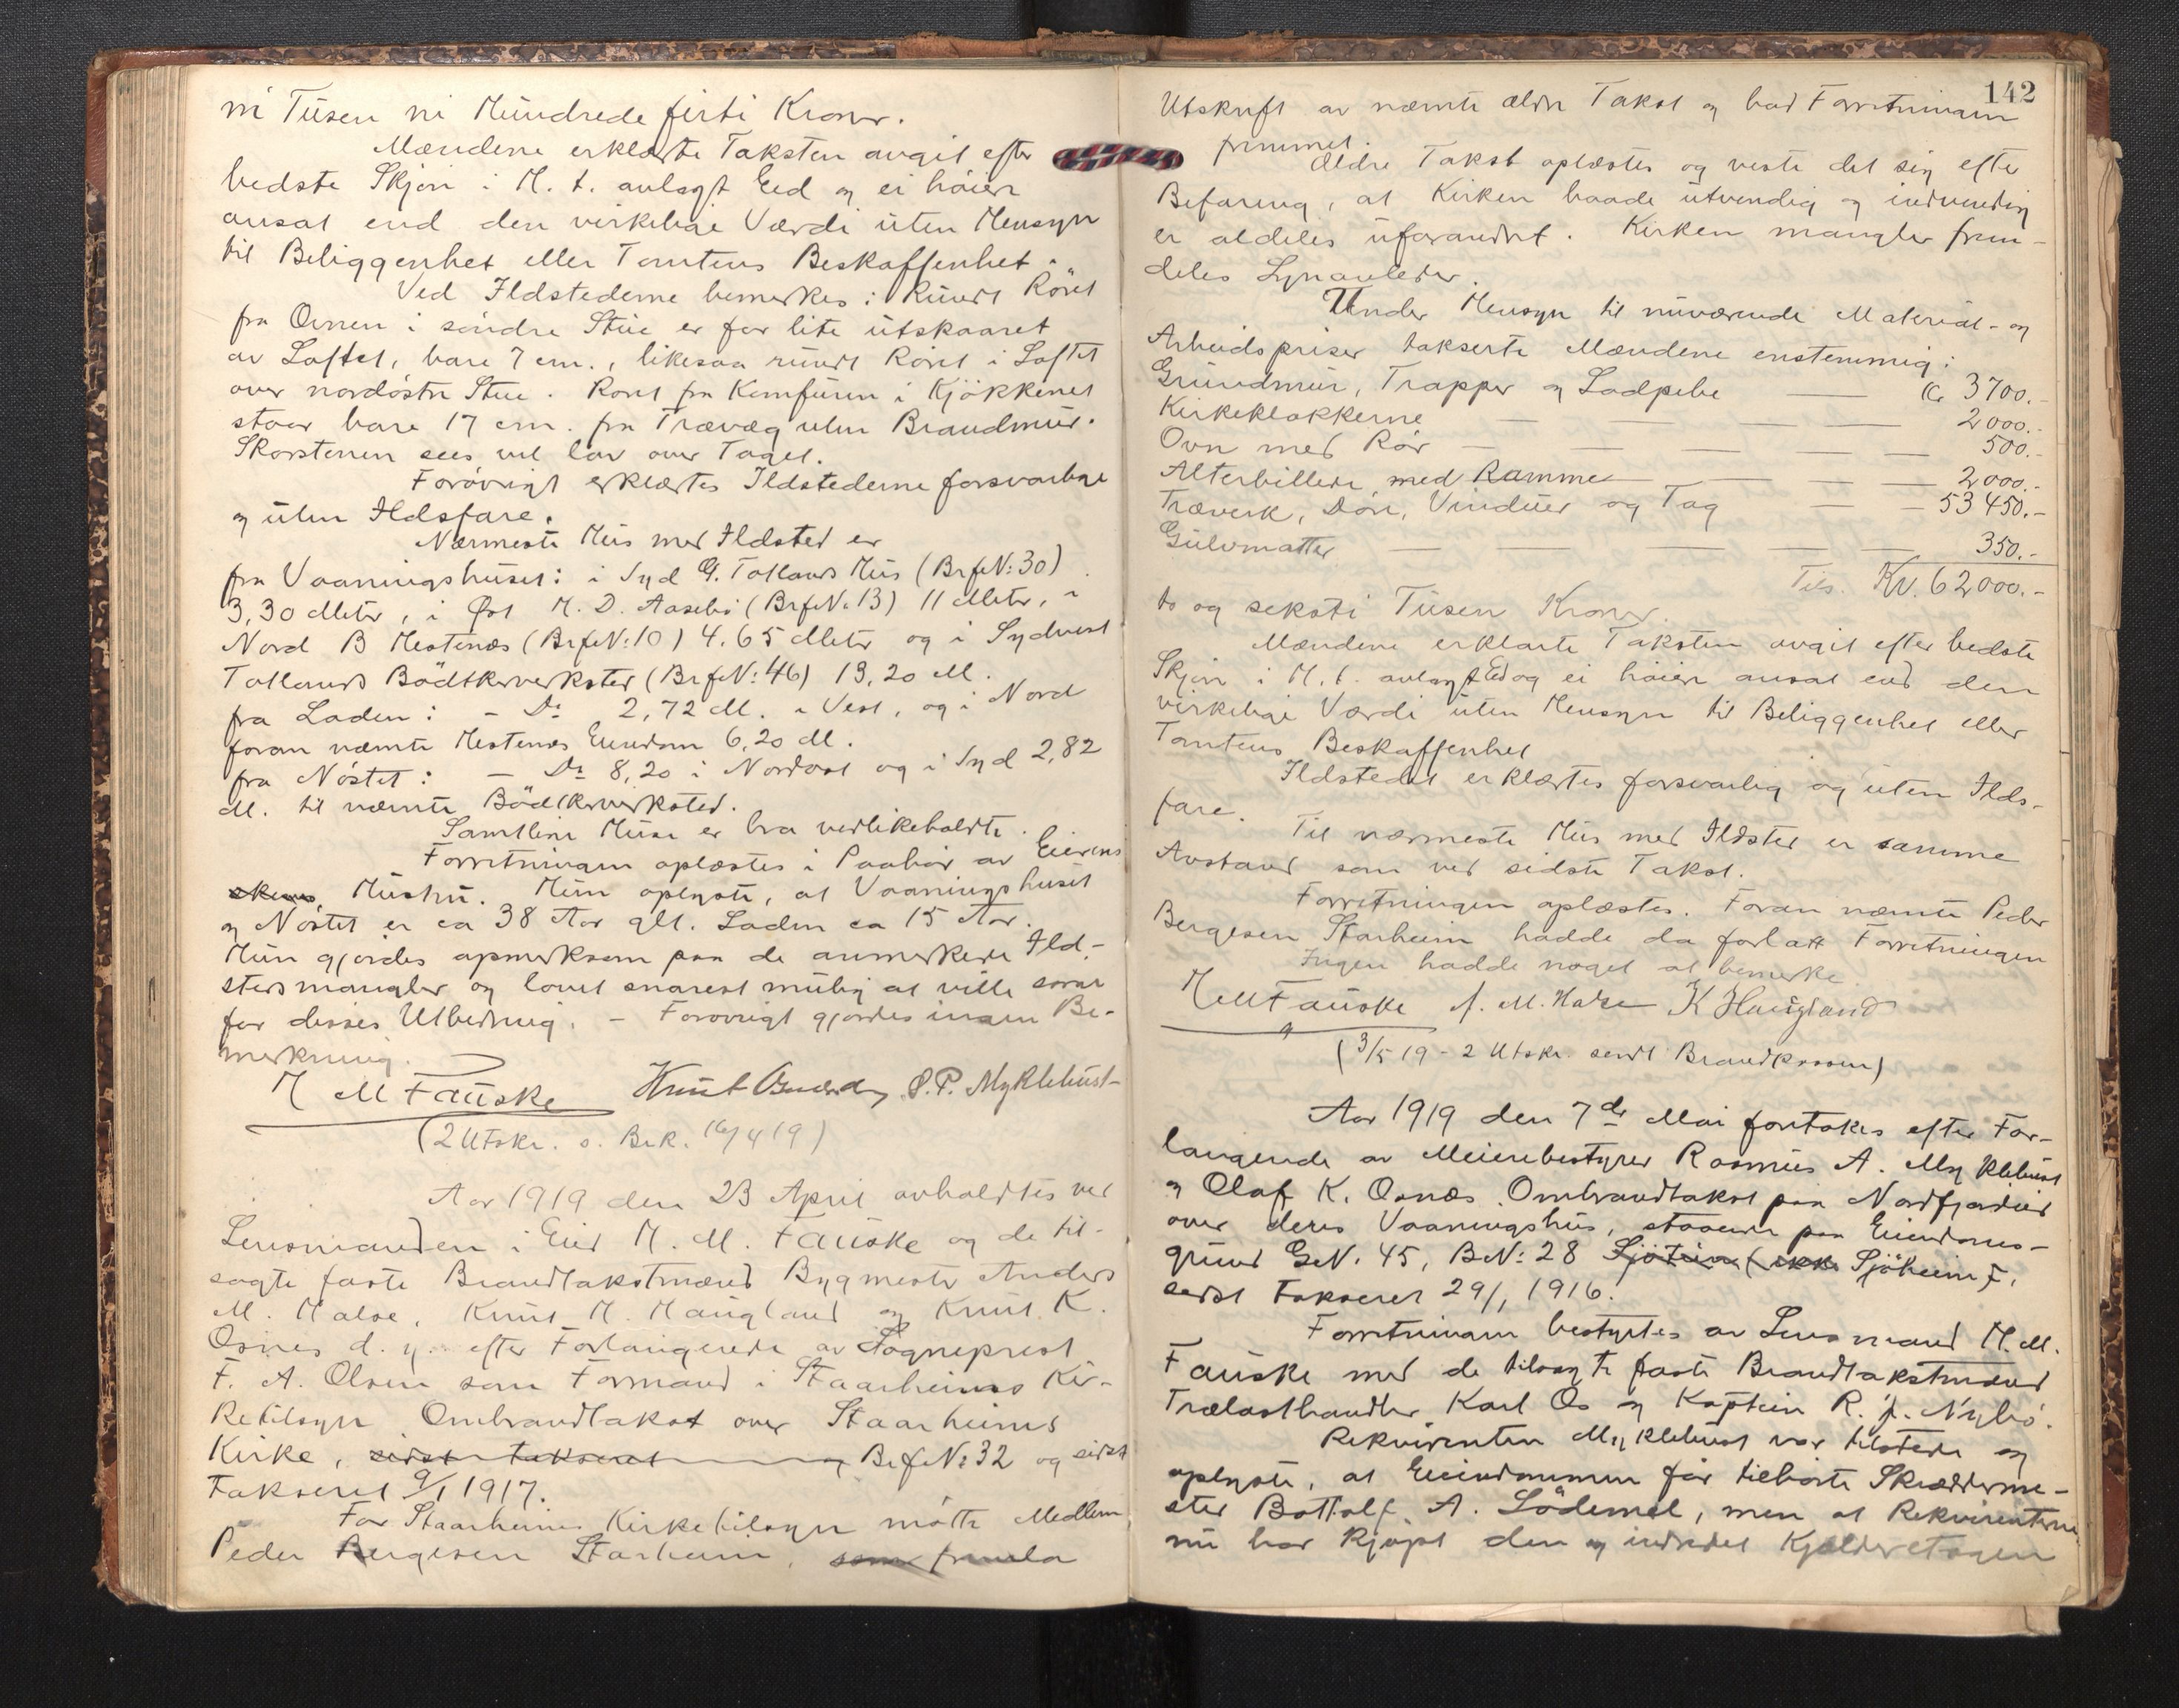 ni Tusen ni Hundrede firti Kroner.
Mændene erklærte Taksten avgit efter
bedste Skjøn i H. t. avlagt Eed og ei høiere
ansat end den virkelige Værdi uten Hensyn
til Beliggenhet eller Tomtens Beskaffenhet.
Ved Ildstederne bemerkes: Rundt Røret
fra Ovnen i søndre Stue er for lite utskaaret
av Loftet, bare 7 cm., likesaa rundt Røret i Loftet
over nordøstre Stue. Røret fra Komfuren i Kjøkkenet
staar bare 17 cm. fra Trævæg uten Brandmur.
Skorstenen sees vel lav over Taget.
Forøvrigt erklærtes Ildstederne forsvarlige
og uten Ildsfare.
Nærmeste Hus med Ildsted er
fra Vaaningshuset: i Syd G. Totlands Hus (BrfN: 30)
3,30 Meter, i Øst H. D. Aasebø (BrfN: 13) 11 Meter, i
Nord B Hestenæs (BrfN: 10) 4.65 Meter og i Sydvest
Totlands Bødtkerverksted (BrfN: 46) 13,20 M.
fra Laden: - Do 2,72 M. i Vest, og i Nord
foran nævnte Hestenæs Eiendom 6,20 M.
fra Nøstet: - Do 8,20 i Nordost og i Syd 2,82
M. til nævnte Bødtkerverksted.
Samtlige Huse er bra vedlikeholdte.
Forretningen oplæstes i Paahør av Eierens
Hustru. Hun oplyste, at Vaaningshuset
og Nøstet er ca 38 Aar glt. Laden ca 15 Aar.
Hun gjordes opmerksom paa de anmerkede Ild-
stedsmangler og lovet snarest mulig at ville sørge
for disses Utbedring. - Forøvrigt gjordes ingen Be-
merkning.
H M Fauske Knut O.P. Myklebust
(2 Utskr. s. Br.K. 16/4 19)
Aar 1919 den 23 April avholdtes ved
Lensmanden i Eid H. M. Fauske og de til-
sagte faste Brandtakstmænd Bygmester Anders
M. Halse, Knut H. Haugland og Knut K.
Osnes d. y. efter Forlangende av Sogneprest
F. A. Olsen som Formand i Staarheims Kir-
ketilsyn Ombrandtakst over Staarheims
Kirke, sidst takseret og BrfN: 32 og sidst
takseret 9/1 1917.
For Staarheims Kirketilsyn møtte Medlem
Peder Bergesen Starheim, som fremla
142
Utskrift av nævnte ældre Takst og bad Forretningen
fremmet.
Ældre Takst oplæstes og viste det sig efter
Befaring, at Kirken baade utvendig og indvendig
er aldeles uforandret. Kirken mangler frem-
deles Lynavleder.
Under Hensyn til nuværende Material- og
Arbeidspriser takserte Mændene enstemmig:
Grundmur, Trapper og Lodpibe — Kr 3700.-
Kirkeklokkerne — 2000.-
Ovn med Rør — 500.-
Alterbillede med Ramme — 2000.-
Træverk, Døre, Vinduer og Tag — 53450.-
Gulvmatter — 350.-
Tils. Kr. 62000.-
to og seksti Tusen Kroner.
Mændene erklærte Taksten avgit efter bedste
Skjøn i H. t. avlagt Ed og ei høiere ansat end den
virkelige Værdi uten Hensyn til Beliggenhet eller
Tomtens Beskaffenhet
Ildstedet erklærtes forsvarlig og uten Ilds-
fare.
Til nærmeste Hus med Ildsted er samme
Avstand som ved sidste Takst.
Forretningen oplæstes. Foran nævnte Peder
Bergesen Starheim hadde da forlatt Forretningen
Ingen hadde noget at bemerke.
H M Fauske A. M. Halse K Haugland
(3/5 19 - 2 Utskr. sendt Brandkassen)
Aar 1919 den 7de Mai foretokes efter For-
langende av Meieribestyrer Rasmus A. Myklebust
og Olaf K. Osnæs Ombrandtakst paa Nordfjordeid
over deres Vaaningshus, staaende paa Eiendoms-
grund GN. 45, BN: 28 (ikke Sjøheim),
sidst takseret 29/1 1916.
Forretningen bestyrtes av Lensmand H. M.
Fauske med de tilsagte faste Brandtakstmænd
Trælasthandler Karl Os og Kaptein R. J. Nybø.
Rekvirenten Myklebust var tilstede og
oplyste, at Eiendommen før tilhørte Skrædderme-
ster Bottolf A. Lødemel, men at Rekvirenterne
nu har kjøpt den og indredet Kjelderetagen